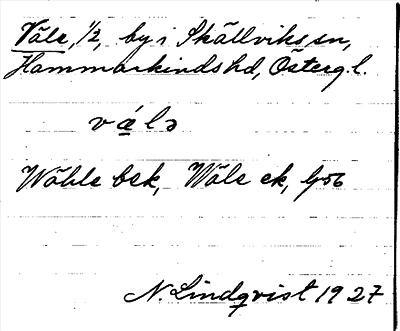 Våle, 1/2, by i Skällviks sn,
Hammarkinds hd, Österg. l.
vålə
Wåhle bek, Wåle ek,
N. Lindqvist 1927